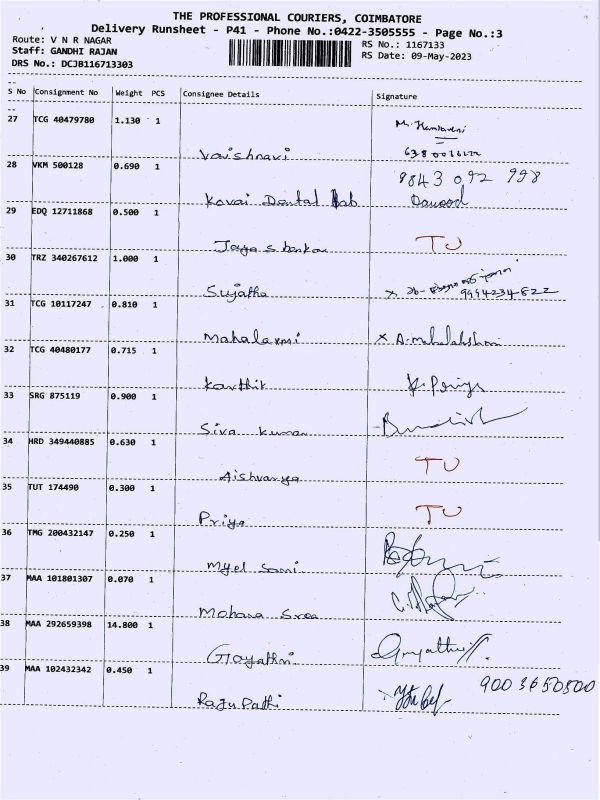 THE PROFESSIONAL COURIERS, COIMBATORE
Delivery Runsheet - P41 - Phone No.:0422-3505555 - Page No.:3
Route: V N R NAGAR
Staff: GANDHI RAJAN
DRS No.: DCJB116713303
RS No.: 1167133
RS Date: 09-May-2023
S No Consignment No Weight PCS Consignee Details Signature
27 TCG 40479780 1.130 1
Vaishnavi
28 VKM 500128 0.690 1 9843 092 998
Kovai Dental lab Dawood
29 EDQ 12711868 0.500 1
Jaya shankar TU
30 TRZ 340267612 1.000 1
Sujatha x 9994234822
31 TCG 10117247 0.810 1
Mahalaxmi x A. mahalakshmi
32 TCG 40480177 0.715 1
Karthik K. Priya
33 SRG 875119 0.900 1
Siva kumar
34 HRD 349440885 0.630 1
Aishwarya TU
35 TUT 174490 0.300 1
Priya TU
36 TMG 200432147 0.250 1
Myel Sami
37 MAA 101801307 0.070 1
Mohana Sree
38 MAA 292659398 14.800 1
Gayathri Gayathri
39 MAA 102432342 0.450 1 900 3650500
Raju Pathi